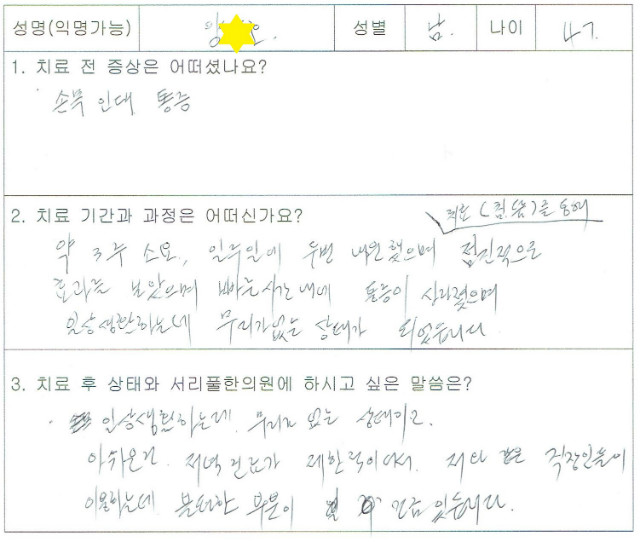 성명(익명가능) 양 오. 성별 남. 나이 47.
1. 치료 전 증상은 어떠셨나요?
손목 인대 통증
2. 치료 기간과 과정은 어떠신가요?
치료(침.뜸)를 통해
약 3주 소요., 일주일에 두번 내원했으며 점진적으로
효과를 보았으며 빠른시간내에 통증이 사라졌으며
일상생활하는데 무리가없는 상태가 되었습니다.
3. 치료 후 상태와 서리풀한의원에 하시고 싶은 말씀은?
일상생활하는데. 무리 없는 상태이고.
아쉬운건. 저녁 진료가 제한적이어서. 직장인들이
이용하는데 불편한 부분이 조금 있습니다.